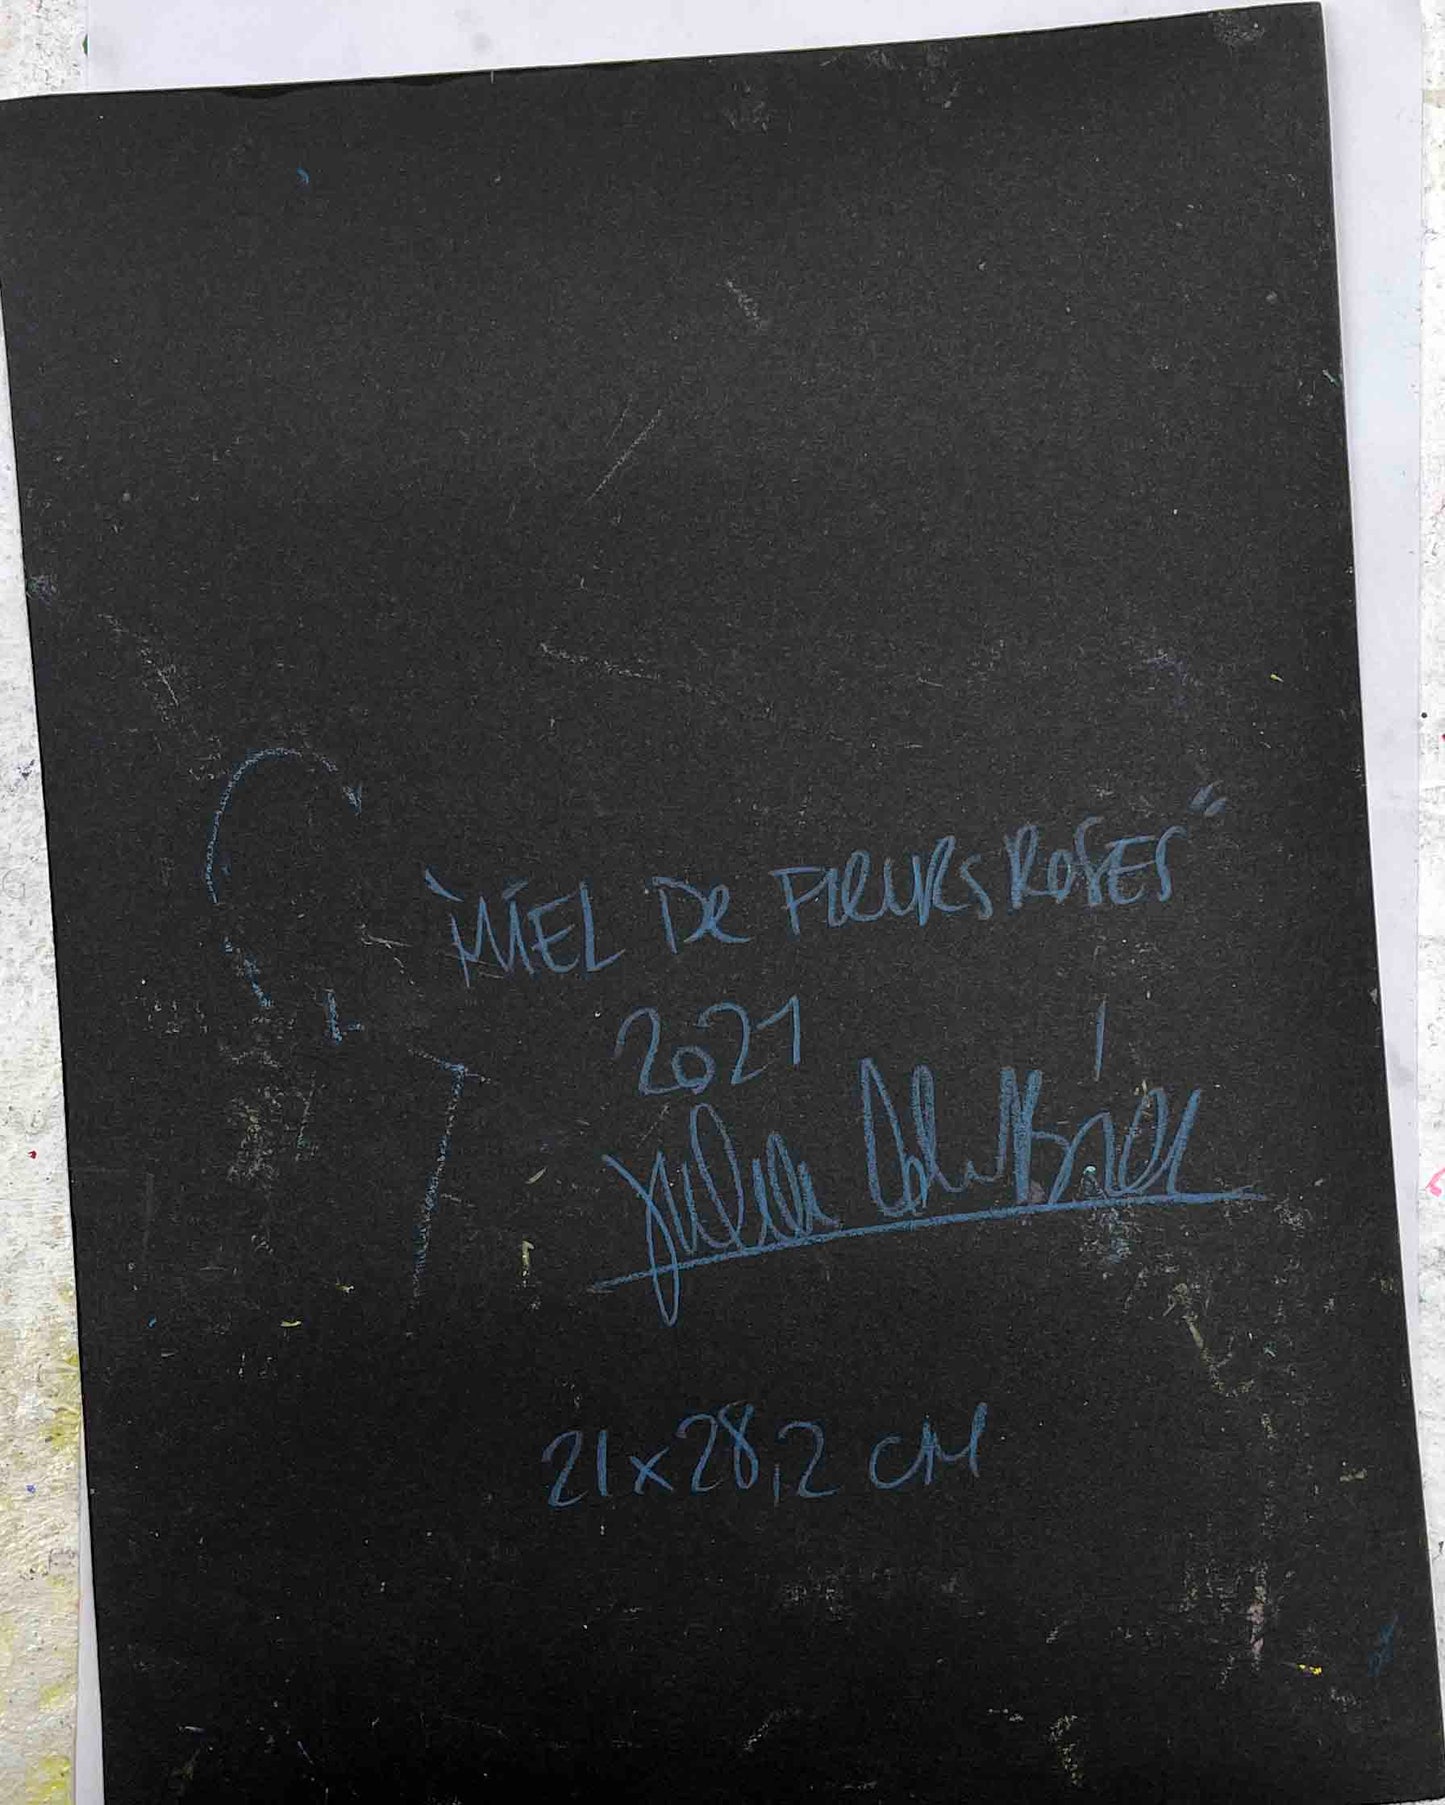 "MIEL De FLEURS ROSES"
2021
Julia
21x28,2 CM